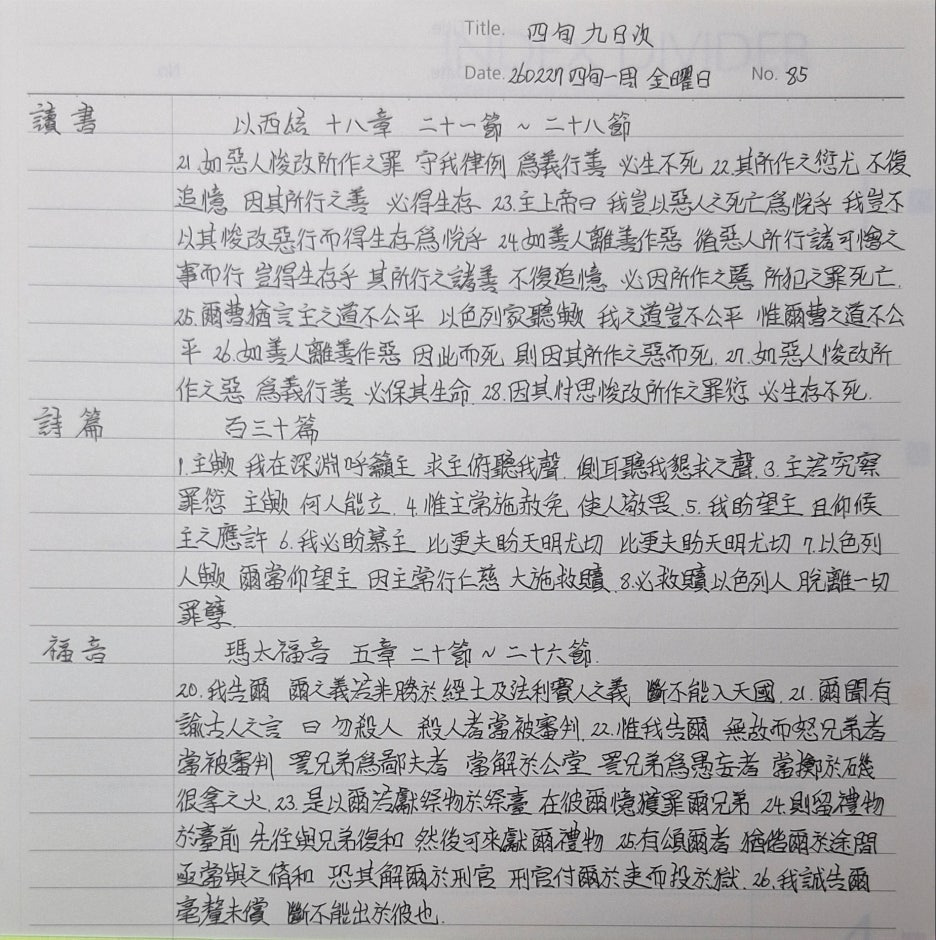 Title. 四旬 九日次
Date. 260227 四旬一周 金曜日 No. 85
讀書 以西結 十八章 二十一節 ~ 二十八節
21.如惡人悛改所作之罪 守我律例 爲義行善 必生不死 22.其所作之愆尤 不復
追憶 因其所行之善 必得生存 23.主上帝曰 我豈以惡人之死亡爲悅乎 我豈不
以其悛改惡行而得生存爲悅乎 24.如善人離善作惡 循惡人所行諸可憎之
事而行 豈得生存乎 其所行之諸善 不復追憶 必因所作之惡 所犯之罪死亡.
25.爾曹猶言主之道不公平 以色列家聽歟 我之道豈不公平 惟爾曹之道不公
平 26.如善人離善作惡 因此而死 則因其所作之惡而死. 27.如惡人悛改所
作之惡 爲義行善 必保其生命. 28.因其忖思悛改所作之罪愆 必生存不死.
詩篇 百三十篇
1.主歟 我在深淵呼籲主 求主俯聽我聲. 側耳聽我懇求之聲. 3.主若究察
罪愆 主歟 何人能立. 4.惟主常施赦免 使人敬畏. 5.我盼望主 且仰候
主之應許 6.我必盼慕主 比更夫盼天明尤切 比更夫盼天明尤切 7.以色列
人歟 爾當仰望主 因主常行仁慈 大施救贖. 8.必救贖以色列人 脫離一切
罪孼.
福音 瑪太福音 五章 二十節 ~ 二十六節.
20.我告爾 爾之義若非勝於經士及法利賽人之義 斷不能入天國. 21.爾聞有
諭古人之言 曰 勿殺人 殺人者當被審判. 22.惟我告爾 無故而怒兄弟者
當被審判 詈兄弟爲鄙夫者 當解於公堂 詈兄弟爲愚妄者 當擲於磯
很拿之火. 23.是以爾若獻祭物於祭臺 在彼爾憶獲罪爾兄弟 24.則留禮物
於臺前 先往與兄弟復和 然後可來獻爾禮物 25.有頌爾者 猶偕爾於途間
亟當與之脩和 恐其解爾於刑官 刑官付爾於吏而投於獄. 26.我誠告爾
毫釐未償 斷不能出於彼也.